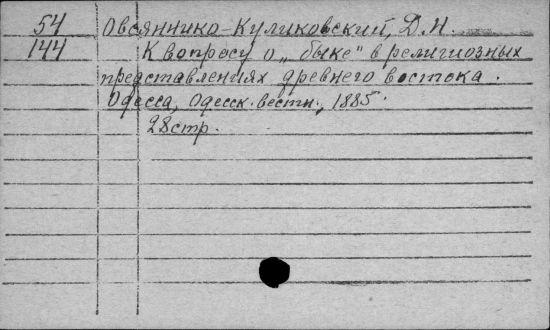 54 Овсянико-Куликовский, Д.Н.
144 К вопросу о „быке" в религиозных
представлениях древнего востока.
Одесса, Одесск. вестн., 1885.
28стр.